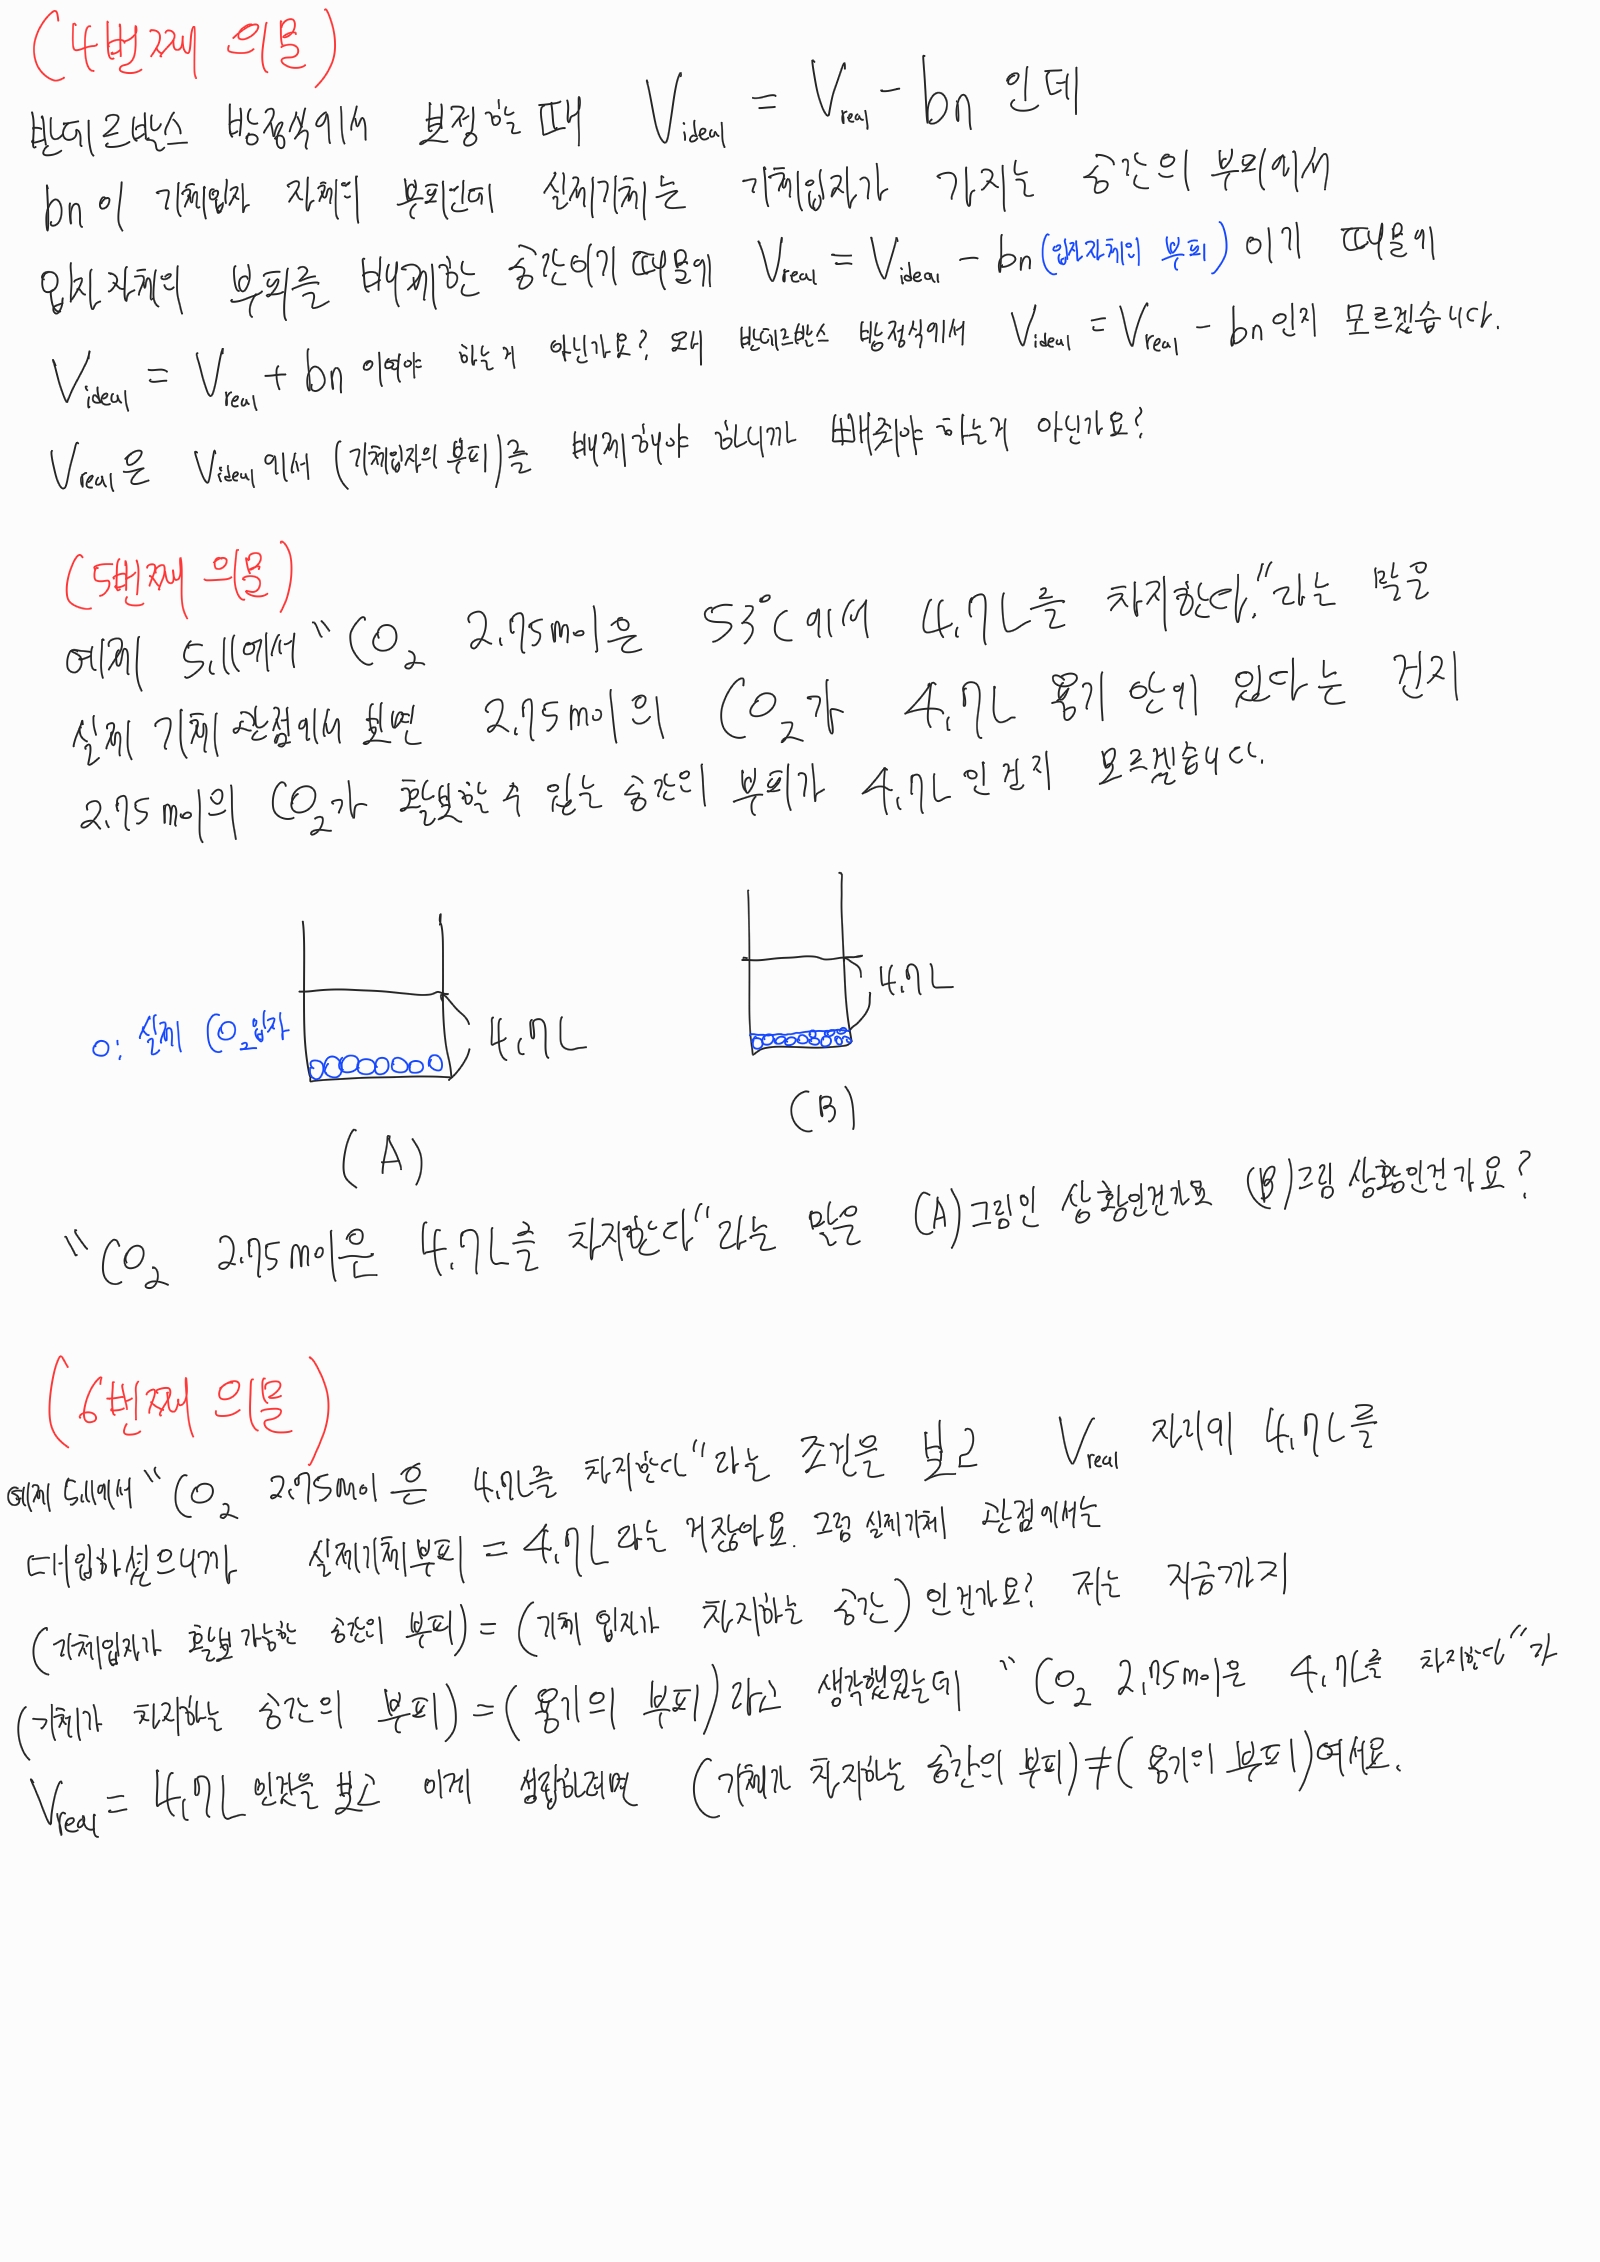 (4번째 의문)
반데르발스 방정식에서 보정할 때 Videal = Vreal - bn 인데
bn이 기체입자 자체의 부피인데 실제기체는 기체입자가 가지는 공간의 부피에서
입자 자체의 부피를 배제한 공간이기 때문에 Vreal = Videal - bn (입자자체의 부피) 이기 때문에
Videal = Vreal + bn 이여야 하는게 아닌가요? 왜 반데르발스 방정식에서 Videal = Vreal - bn인지 모르겠습니다.
Vreal은 Videal에서 (기체입자의 부피)를 배제해야 하니까 빼줘야 하는게 아닌가요?
(5번째 의문)
예제 5.11에서 "CO2 2.75mol은 53°C에서 4.7L를 차지한다."라는 말은
실제 기체 관점에서 보면 2.75mol의 CO2가 4.7L 용기 안에 있다는 건지
2.75mol의 CO2가 활보할 수 있는 공간의 부피가 4.7L인건지 모르겠습니다.
4.7L
o: 실제 CO2입자
4.7L
(B)
(A)
"CO2 2.75mol은 4.7L를 차지한다"라는 말은 (A)그림인 상황인건가요 (B)그림 상황인건가요?
(6번째 의문)
예제 5.11에서 "CO2 2.75mol은 4.7L를 차지한다"라는 조건을 보고 Vreal 자리에 4.7L를
대입하셨으니까 실제기체부피 = 4.7L라는 거잖아요. 그럼 실제기체 관점에서는
(기체입자가 활보가능한 공간의 부피) = (기체 입자가 차지하는 공간) 인건가요? 저는 지금까지
(기체가 차지하는 공간의 부피) = (용기의 부피)라고 생각했었는데 "CO2 2.75mol은 4.7L를 차지한다"가
Vreal = 4.7L인것을 보고 이게 성립하려면 (기체가 차지하는 공간의 부피) ≠ (용기의 부피)여서요.